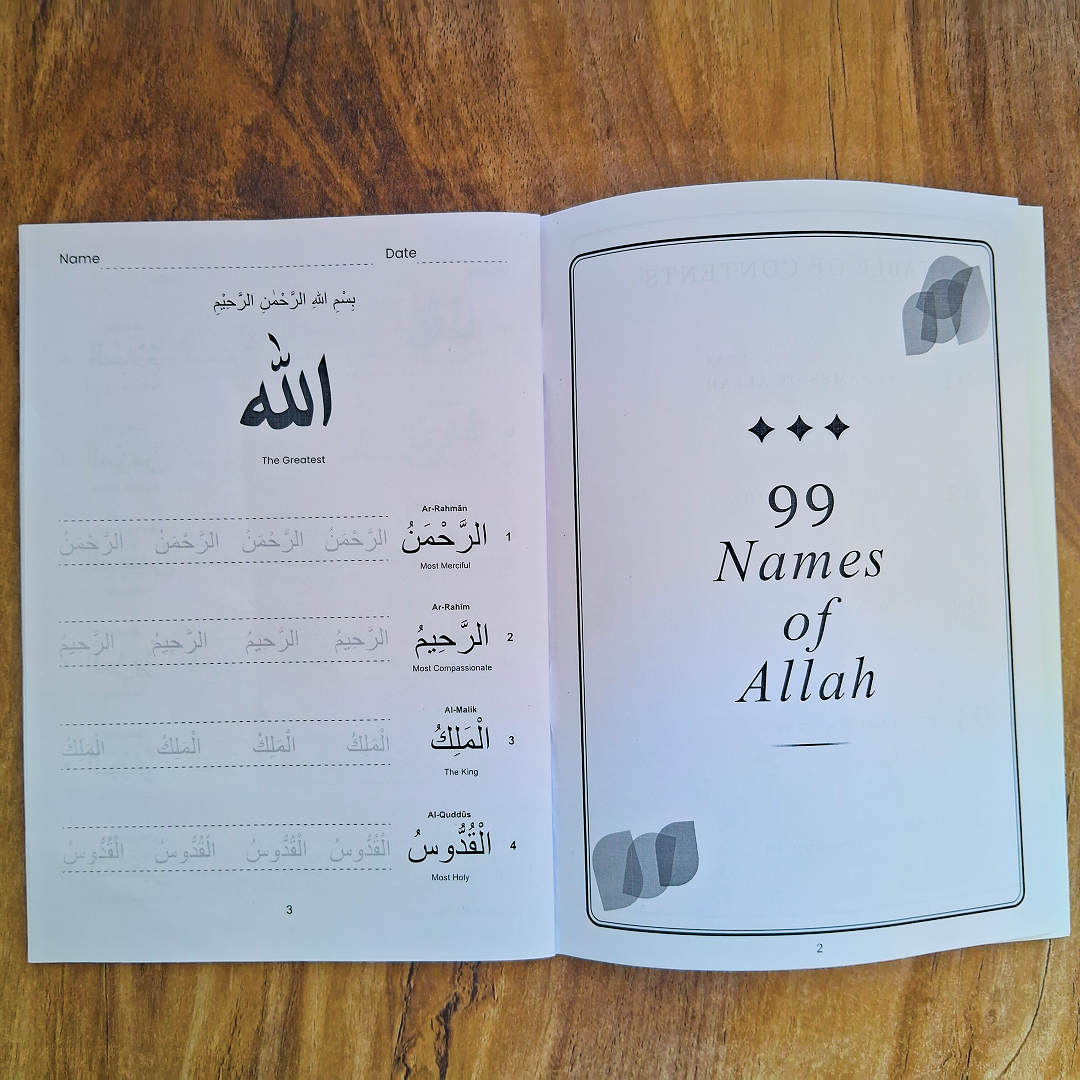 99
Names
of
Allah
2
Name Date
بِسْمِ اللهِ الرَّحْمٰنِ الرَّحِيْمِ
الله
The Greatest
Ar-Rahmān
1 الرَّحْمَنُ الرَّحْمَنُ الرَّحْمَنُ الرَّحْمَنُ الرَّحْمَنُ
Most Merciful
Ar-Rahīm
2 الرَّحِيمُ الرَّحِيمُ الرَّحِيمُ الرَّحِيمُ الرَّحِيمُ
Most Compassionate
Al-Malik
3 الْمَلِكُ الْمَلِكُ الْمَلِكُ الْمَلِكُ الْمَلِكُ
The King
Al-Quddūs
4 الْقُدُّوسُ الْقُدُّوسُ الْقُدُّوسُ الْقُدُّوسُ الْقُدُّوسُ
Most Holy
3